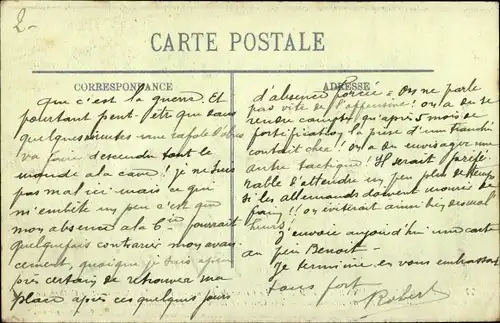 2-
CARTE POSTALE
CORRESPONDANCE
que c'est la guerre. Et
pourtant peut-être que dans
quelques minutes une rafale d'obus
va faire descendre tout le
monde à la cave! je ne suis
pas mal ici mais ce qui
m'embête un peu c'est que
mon absence à la Cie pourrait
quelquefois contrarier mon avan-
cement, quoique je suis à peu
près certain de retrouver ma
place après ces quelques jours
ADRESSE
d'absence forcée. On ne parle
pas vite de l'offensive! on a du se
rendre compte qu'après 5 mois de
fortification la prise d'une tranchée
coûtait cher! on a du envisager une
autre tactique! Il serait préfé-
rable d'attendre un peu plus de temps
si les allemands doivent mourir de
faim!! on éviterait ainsi bien des mal
heurs.
J'envoie aujourd'hui une carte
au Benoit-
Je termine en vous embrassant
tous fort.
Robert